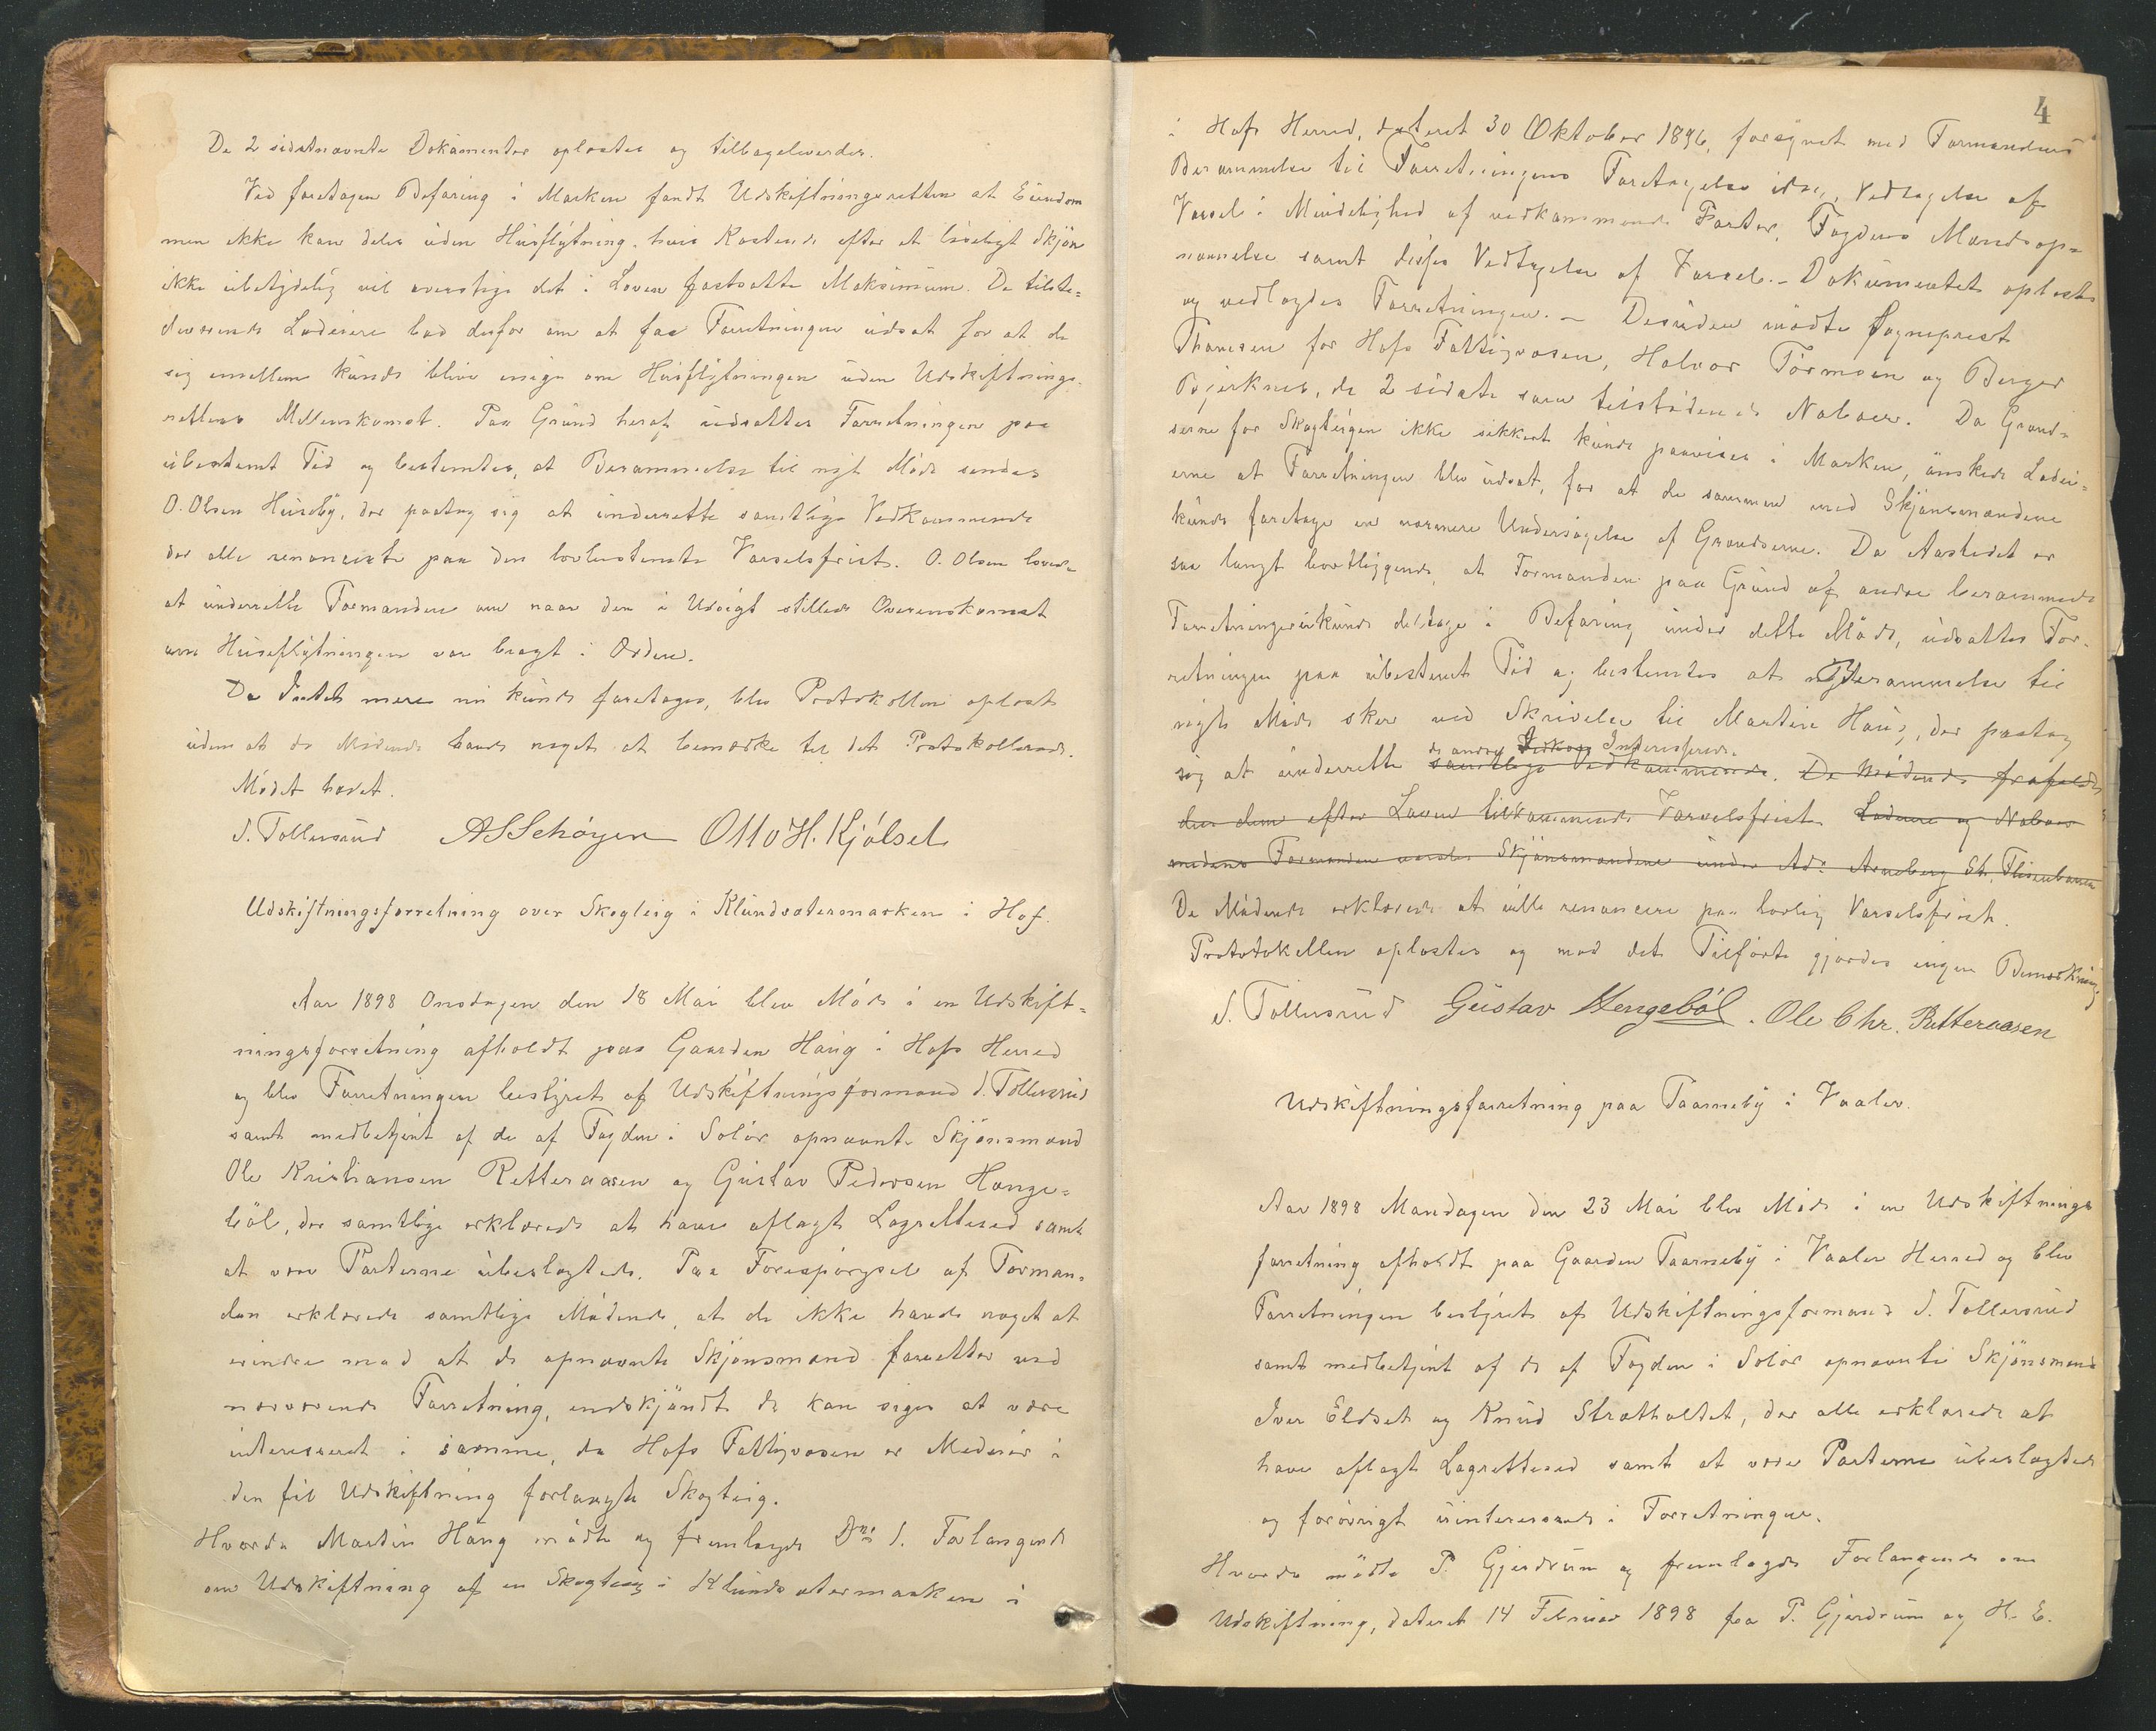 De 2 sidstnævnte Dokumenter oplæstes og tilbageleverdes.
Ved foretagen Befaring i Marken fandt Udskiftningsretten at Eiendom
men ikke kan deles uden Husflytning, hvis Kostende efter et løseligt Skjøn
ikke ubetydelig vil overstige det i Loven fastsatte Maksimum. De tilste-
deværende Lodeiere bad derfor om at faa Forretningen udsat for at de
sig imellem kunde blive enige om Husflytningen uden Udskiftnings-
rettens Mellemkomst. Paa Grund heraf udsattes Forretningen paa
ubestemt Tid og bestemtes, at Berammelse til nyt Møde sendes
O. Olsen Huseby, der paatog sig at underrette samtlige Vedkommende
der alle renoncerte paa den lovbestemte Varselsfrist. O. Olsen lovede
at underrette Formanden om naar den i Udsigt stillede Overenskomst
om Husflytningen var bragt i Orden.
Da Intet mere nu kunde foretages, blev Protokollen oplæst
uden at de Mødende havde noget at bemærke til det Protokollerede.
Mødet hævet.
S. Tollersrud A S Schøyen Otto H. Kjølset
Udskiftningsforretning over Skogteig i Klundsætermarken i Hof.
Aar 1898 Onsdagen den 18 Mai blev Møde i en Udskift-
ningsforretning afholdt paa Gaarden Haug i Hofs Herred
og blev Forretningen bestyret af Udskiftningsformand S. Tollersrud
samt medbetjent af de af Fogden i Solør opnævnte Skjønsmænd
Ole Kristiansen Retteraasen og Gustav Pedersen Henge-
bøl, der samtlige erklærede at have aflagt Lagrettesed samt
at være Parterne ubeslægtede. Paa Forespørgsel af Forman-
den erklærede samtlige Mødende, at de ikke havde noget at
erindre mod at de opnævnte Skjønsmænd forretter ved
nærværende Forretning, endskjøndt de kan siges at være
interesseret i samme, da Hofs Fattigvæsen er Medeier i
den til Udskiftning forlangte Skogteig.
Hvorda Martin Haug mødte og fremlagde Dm: 1. Forlangende
om Udskiftning af en Skogteig i Klundsætermarken i
4
i Hofs Herred, dateret 30 Oktober 1896, forsynet med Formandens
Berammelse til Forretningens Foretagelse idag, Vedtagelse af
Varsel i Mindelighed af vedkommende Parter, Fogdens Mandsop-
nævnelse samt disses Vedtagelse af Varsel. – Dokumentet oplæstes
og vedlagdes Forretningen. – Desuden mødte Sogneprest
Thoresen for Hofs Fattigvæsen, Halvor Tørmoen og Berger
Bjerknes, de 2 sidste som tilstødende Naboer. Da Grænd-
serne for Skogteigen ikke sikkert kunde paavises i Marken, ønskede Lodei-
erne at Forretningen blev udsat, for at de sammen med Skjønsmændene
kunde foretage en nærmere Undersøgelse af Grændserne. Da Aastedet er
saa langt bortliggende, at Formanden paa Grund af andre berammede
Forretninger ikke kunde deltage i Befaring under dette Møde, udsattes For-
retningen paa ubestemt Tid og bestemtes at Berammelse til
nyt Møde sker ved Skrivelse til Martin Haug, der paatog
de andre Interesserede.
sig at underrette samtlige Vedkommende. De Mødende frafaldt
den dem efter Loven tilkommende Varselsfrist. Lodeiere og Naboer
medens Formanden varsler Skjønsmændene under Adr. Arneberg St. Flisenbanen
De Mødende erklærede at ville renoncere paa lovlig Varselsfrist.
Prototokellen oplæstes og mod det Tilførte gjordes ingen Bemærkning.
S. Tollersrud Gustav Hengebøl. Ole Chr. Retteraasen
Udskiftningsforretning paa Taarneby i Vaaler.
Aar 1898 Mandagen den 23 Mai blev Møde i en Udskiftnings
forretning afholdt paa Gaarden Taarneby i Vaaler Herred og blev
Forretningen bestyret af Udskiftningsformand S. Tollersrud
samt medbetjent af de af Fogden i Solør opnævnte Skjønsmænd
Iver Eldset og Knud Strætholtet, der alle erklærede at
have aflagt Lagrettesed samt at være Parterne ubeslægtede
og forøvrigt uinteresserede i Forretningen.
Hvorda mødte P. Gjerdrum og fremlagde Forlangende om
Udskiftning, dateret 14 Februar 1898 fra P. Gjerdrum og H. E.